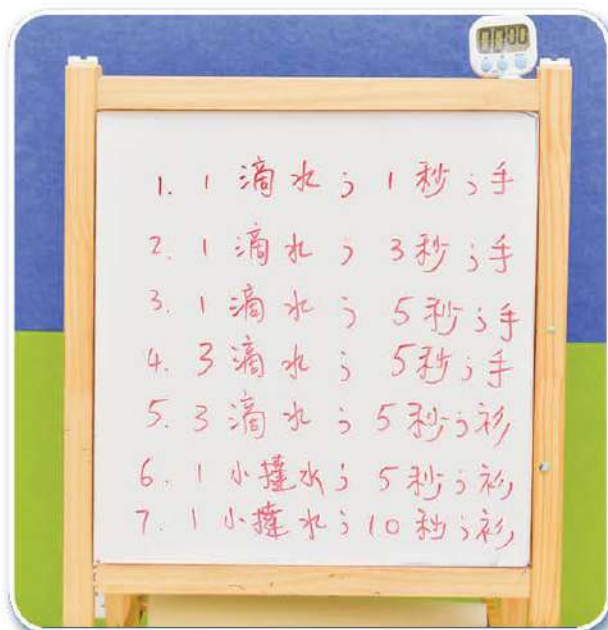 00:00
1. 1 滴水; 1秒; 手
2. 1 滴水; 3秒; 手
3. 1 滴水; 5秒; 手
4. 3 滴水; 5秒; 手
5. 3 滴水; 5秒; 衫
6. 1 小攤水; 5秒; 衫
7. 1 小攤水; 10秒; 衫